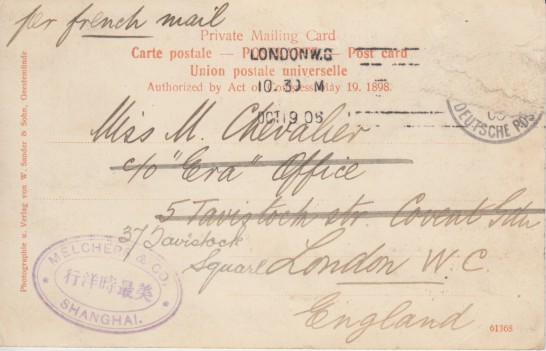 per french mail
Private Mailing Card
Carte postale — — Post card
Union postale universelle
Authorized by Act of Congress, May 19. 1898.
LONDON W.C
10.30 M
OCT 19 06
DEUTSCHE POS
Miss M. Chevalier
c/o "Era" Office
5 Tavistock str. Covent Gdn
37 Tavistock
Square
London W.C.
England
MELCHERS & CO.
行洋時最美
SHANGHAI.
Photographie u. Verlag von W. Sander & Sohn, Geestemünde
61368